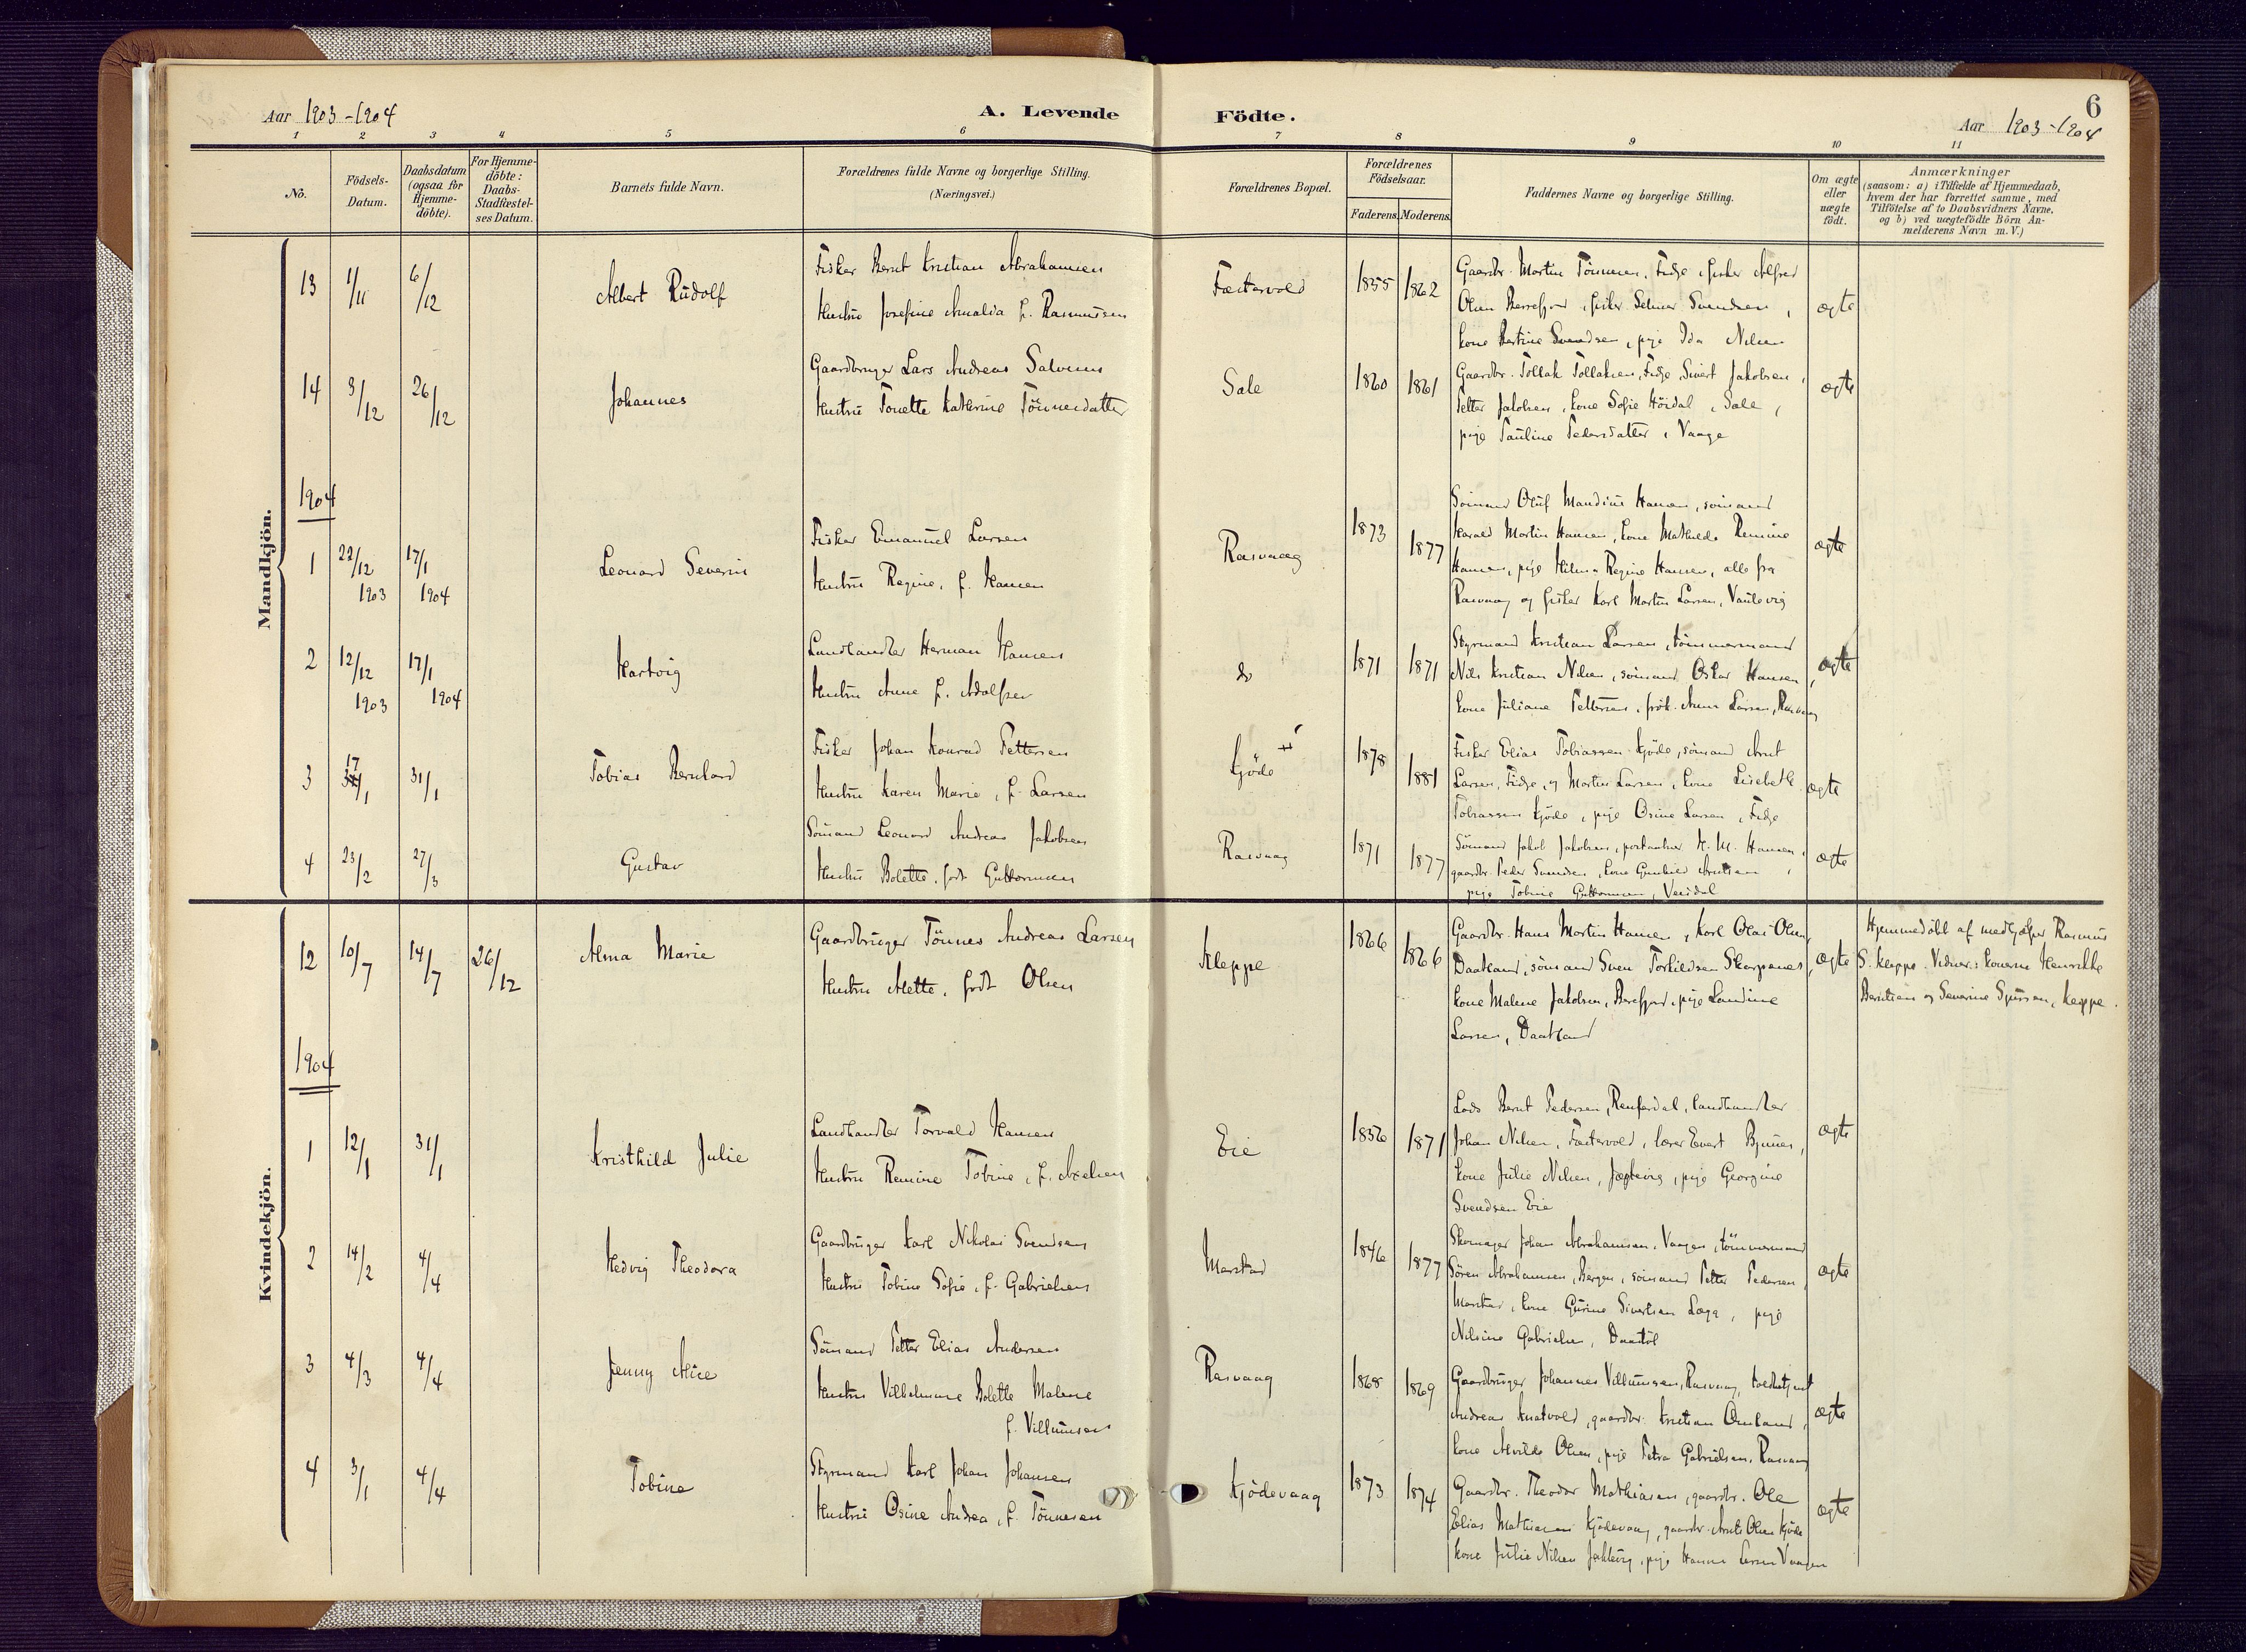 6
Aar 1903-1904
A. Levende
Födte.
Aar 1903-1904
1 2 3 4 5 6 7 8 9 10 11
No.
Födsels-
Datum.
Daabsdatum
(ogsaa for
Hjemme-
döbte).
For Hjemme-
döbte:
Daabs-
Stadfæstel-
ses Datum.
Barnets fulde Navn.
Forældrenes fulde Navne og borgerlige Stilling.
(Næringsvei.)
Forældrenes Bopæl.
Forældrenes
Födselsaar.
Faderens. Moderens.
Faddernes Navne og borgerlige Stilling.
Om ægte
eller
uægte
födt.
Anmærkninger
(saasom: a) i Tilfælde af Hjemmedaab,
hvem der har forrettet samme, med
Tilföielse af to Daabsvidners Navne,
og b) ved uægtefödte Börn An-
melderens Navn m. V.)
Mandkjön.
13 1/11 6/12
Albert Rudolf
Fisker Bernt Kristian Abrahamsen
Hustru Josefine Amalia f. Rasmussen
1855 1862
Gaardbr. Martin Tönnesen, Fidje, fisker Alfred
Olsen Berrefjord, fisker Selmer Svendsen,
kone Bertine Svendsen, pige Ida Nilsen
ægte
14 3/12 26/12
Johannes
Gaardbruger Lars Andreas Salvesen
Hustru Tonette Katherine Tönnesdatter
Sale
1860 1861
Gaardbr. Tollak Tollaksen, Fidje, Sivert Jakobsen,
Petter Jakobsen, kone Sofie Höidal, Sale,
pige Pauline Pedersdatter, Vaage
ægte
1904
1 22/12 1903 17/1 1904
Leonard Severin
Fisker Emanuel Larsen
Hustru Regine, f. Hansen
Rasvaag
1873 1877
Sömand Oluf Mandius Hansen, sömand
Harald Martin Hansen, kone Mathilde Remine
Hansen, pige Hilma Regine Hansen, alle fra
Rasvaag og fisker Karl Martin Larsen, Vaulevig
ægte
2 12/12 1903 17/1 1904
Hartvig
Landhandler Herman Hansen
Hustru Anne f. Adolfsen
do
1871 1871
Styrmand Kristian Larsen, tömmermand
Nils Kristian Nilsen, sömand Oskar Hansen,
kone Juliane Pettersen, frök. Anna Larsen, Rasvaag
ægte
3 17/1 31/1
Tobias Bernhard
Fisker Johan Konrad Pettersen
Hustru Karen Marie, f. Larsen
Kjöde
1878 1881
Fisker Elias Tobiassen Kjöde, sömand Arnt
Larsen, Fidje, og Martin Larsen, kone Lisebeth
Tobiassen Kjöde, pige Osine Larsen, Fidje
ægte
4 23/2 27/3
Gustav
Sömand Leonard Andreas Jakobsen
Hustru Bolette, född Guttormsen
Rasvaag
1871 1877
Sömand Jakob Jakobsen, H. M. Hansen,
gaardbr. Peder Svendsen, kone Gunhild
pige Tobine Guttormsen, Veisdal
ægte
Kvindekjön.
12 10/7 14/7 26/12
Alma Marie
Gaardbruger Tönnes Andreas Larsen
Hustru Alette, född Olsen
Kleppe
1866 1866
Gaardbr. Hans Martin Hansen, Karl Olai Olsen,
Daatland, sömand Sven Torkildsen Skarpenes,
kone Malene Jakobsen, Berefjord, pige Landine
Larsen, Daatland
ægte
Hjemmedöbt af medhjælper Rasmus
S. Kleppe. Vidner: konerne Henrikke
Berntsen og Severine Sjursen, Kleppe.
1904
1 12/1 31/1
Kristhild Julie
Landhandler Torvald Hansen
Hustru Remine Tobine, f. Axelsen
Eie
1856 1871
Lods Bernt Pedersen, Renferdal, landhandler
Johan Nilsen, lærer Evert Bjunes,
kone Julie Nilsen, Jægtevig, pige Georgine
Svendsen Eie
ægte
2 14/2 4/4
Hedvig Theodora
Gaardbruger Karl Nikolai Svendsen
Hustru Tobine Sofie, f. Gabrielsen
Marstad
1846 1877
Skomager Johan Abrahamsen, Vaagen, tömmermand
Sören Abrahamsen, Bergen, sömand Petter Pedersen,
Marstad, kone Gurine Sivertsen Lega, pige
Nilsine Gabrielsen, Daatöl
ægte
3 4/3 4/4
Jenny Alice
Sömand Petter Elias Andersen
Hustru Vilhelmine Bolette Malene
f. Villumsen
Rasvaag
1868 1869
Gaardbruger Johannes Villumsen, Rasvaag, toldbetjent
Andreas Knatvold, gaardbr. Kristian Omland,
kone Alvilde Olsen, pige Petra Gabrielsen, Rasvaag
ægte
4 3/1 4/4
Tobine
Styrmand Karl Johan Johansen
Hustru Osine Andrea, f. Tönnesen
Kjödevaag
1873 1874
Gaardbr. Theodor Mathiasen, gaardbr. Ole
Elias Mathiasen Kjödevaag, gaardbr. Arnt Olsen Kjöde
kone Julie Nilsen pige Hanna Larsen Vaagen
ægte